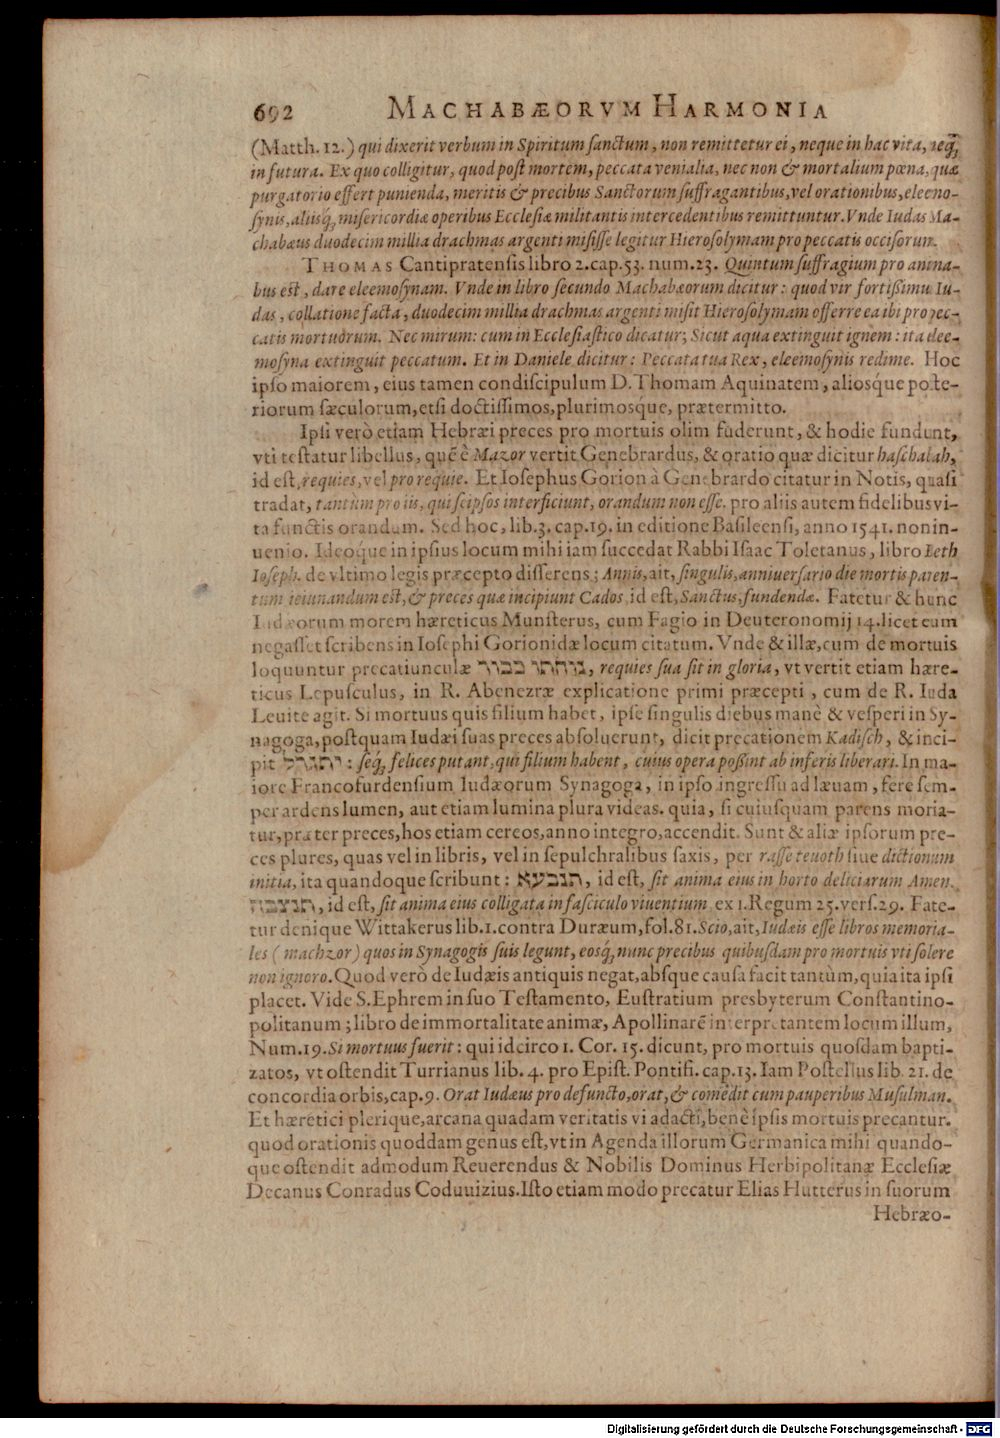 692 MACHABÆORVM HARMONIA
(Matth. 12.) qui dixerit verbum in Spiritum ſanctum, non remittetur ei, neque in hac vita, neq₃
in futura. Ex quo colligitur, quod poſt mortem, peccata venialia, nec non & mortalium pœna, quæ
purgatorio eſſert punienda, meritis & precibus Sanctorum ſuffragantibus, vel orationibus, eleemo-
ſynis, aliisq₃ miſericordiæ operibus Eccleſiæ militantis intercedentibus remittuntur. Vnde Iudas Ma-
chabæus duodecim millia drachmas argenti miſiſſe legitur Hieroſolymam pro peccatis occiſorum.
THOMAS Cantipratenſis libro 2. cap. 53. num. 23. Quintum ſuffragium pro anima-
bus eſt, dare eleemoſynam. Vnde in libro ſecundo Machabæorum dicitur: quod vir fortißimus Iu-
das, collatione facta, duodecim millia drachmas argenti miſit Hieroſolymam offerre ea ibi pro pec-
catis mortuorum. Nec mirum: cum in Eccleſiaſtico dicatur; Sicut aqua extinguit ignem: ita elee-
moſyna extinguit peccatum. Et in Daniele dicitur: Peccata tua Rex, eleemoſynis redime. Hoc
ipſo maiorem, eius tamen condiſcipulum D. Thomam Aquinatem, aliosque poſte-
riorum ſæculorum, etſi doctiſſimos, plurimosque, prætermitto.
Ipſi verò etiam Hebræi preces pro mortuis olim fuderunt, & hodie fundunt,
vti teſtatur libellus, quẽ è Mazor vertit Genebrardus, & oratio quæ dicitur haſchalah,
id eſt, requies, vel pro requie. Et Ioſephus Gorion à Genebrardo citatur in Notis, quaſi
tradat, tantùm pro iis, qui ſeipſos interficiunt, orandum non eſſe. pro aliis autem fidelibus vi-
ta functis orandum. Sed hoc, lib. 3. cap. 19. in editione Baſileenſi, anno 1541. non in-
uenio. Ideoque in ipſius locum mihi iam ſuccedat Rabbi Iſaac Toletanus, libro Beth
Ioſeph. de vltimo legis præcepto diſſerens; Annis, ait, ſingulis, anniuerſario die mortis paren-
tum ieiunandum eſt, & preces quæ incipiunt Cados id eſt, Sanctus, fundendæ. Fatetur & hunc
Iudæorum morem hæreticus Munſterus, cum Fagio in Deuteronomij 14. licet eum
negaſſet ſcribens in Ioſephi Gorionidæ locum citatum. Vnde & illæ, cum de mortuis
loquuntur precatiunculæ נוחתו כבוד, requies ſua ſit in gloria, vt vertit etiam hære-
ticus Lepuſculus, in R. Abenezræ explicatione primi præcepti, cum de R. Iuda
Leuite agit. Si mortuus quis filium habet, ipſe ſingulis diebus manè & veſperi in Sy-
nagoga, poſtquam Iudæi ſuas preces abſoluerunt, dicit precationem Kadiſch, & inci-
pit יתגדל: ſeq₃ felices putant, qui filium habent, cuius opera poßint ab inferis liberari. In ma-
iore Francofurdenſium Iudæorum Synagoga, in ipſo ingreſſu ad læuam, fere ſem-
per ardens lumen, aut etiam lumina plura videas. quia, ſi cuiuſquam parens moria-
tur, præter preces, hos etiam cereos, anno integro, accendit. Sunt & aliæ ipſorum pre-
ces plures, quas vel in libris, vel in ſepulchralibus ſaxis, per raſſe teuoth ſiue dictionum
initia, ita quandoque ſcribunt: תנבעא, id eſt, ſit anima eius in horto deliciarum Amen.
תנצבח, id eſt, ſit anima eius colligata in faſciculo viuentium ex 1. Regum 25. verſ. 29. Fate-
tur denique Wittakerus lib. 1. contra Duræum, fol. 81. Scio, ait, Iudæis eſſe libros memoria-
les (machzor) quos in Synagogis ſuis legunt, eosq₃ nunc precibus quibuſdam pro mortuis vti ſolere
non ignoro. Quod verò de Iudæis antiquis negat, abſque cauſa facit tantùm, quia ita ipſi
placet. Vide S. Ephrem in ſuo Teſtamento, Euſtratium presbyterum Conſtantino-
politanum; libro de immortalitate animæ, Apollinarẽ interpretantem locum illum,
Num. 19. Si mortuus fuerit: qui idcirco 1. Cor. 15. dicunt, pro mortuis quoſdam bapti-
zatos, vt oſtendit Turrianus lib. 4. pro Epiſt. Pontifi. cap. 13. Iam Poſtellus lib. 21. de
concordia orbis, cap. 9. Orat Iudæus pro defuncto, orat, & comedit cum pauperibus Muſulman.
Et hæretici plerique, arcana quadam veritatis vi adacti, benè ipſis mortuis precantur.
quod orationis quoddam genus eſt, vt in Agenda illorum Germanica mihi quando-
que oſtendit admodum Reuerendus & Nobilis Dominus Herbipolitanæ Eccleſiæ
Decanus Conradus Coduuizius. Iſto etiam modo precatur Elias Hutterus in ſuorum
Hebræo-
Digitalisierung gefördert durch die Deutsche Forschungsgemeinschaft - DFG